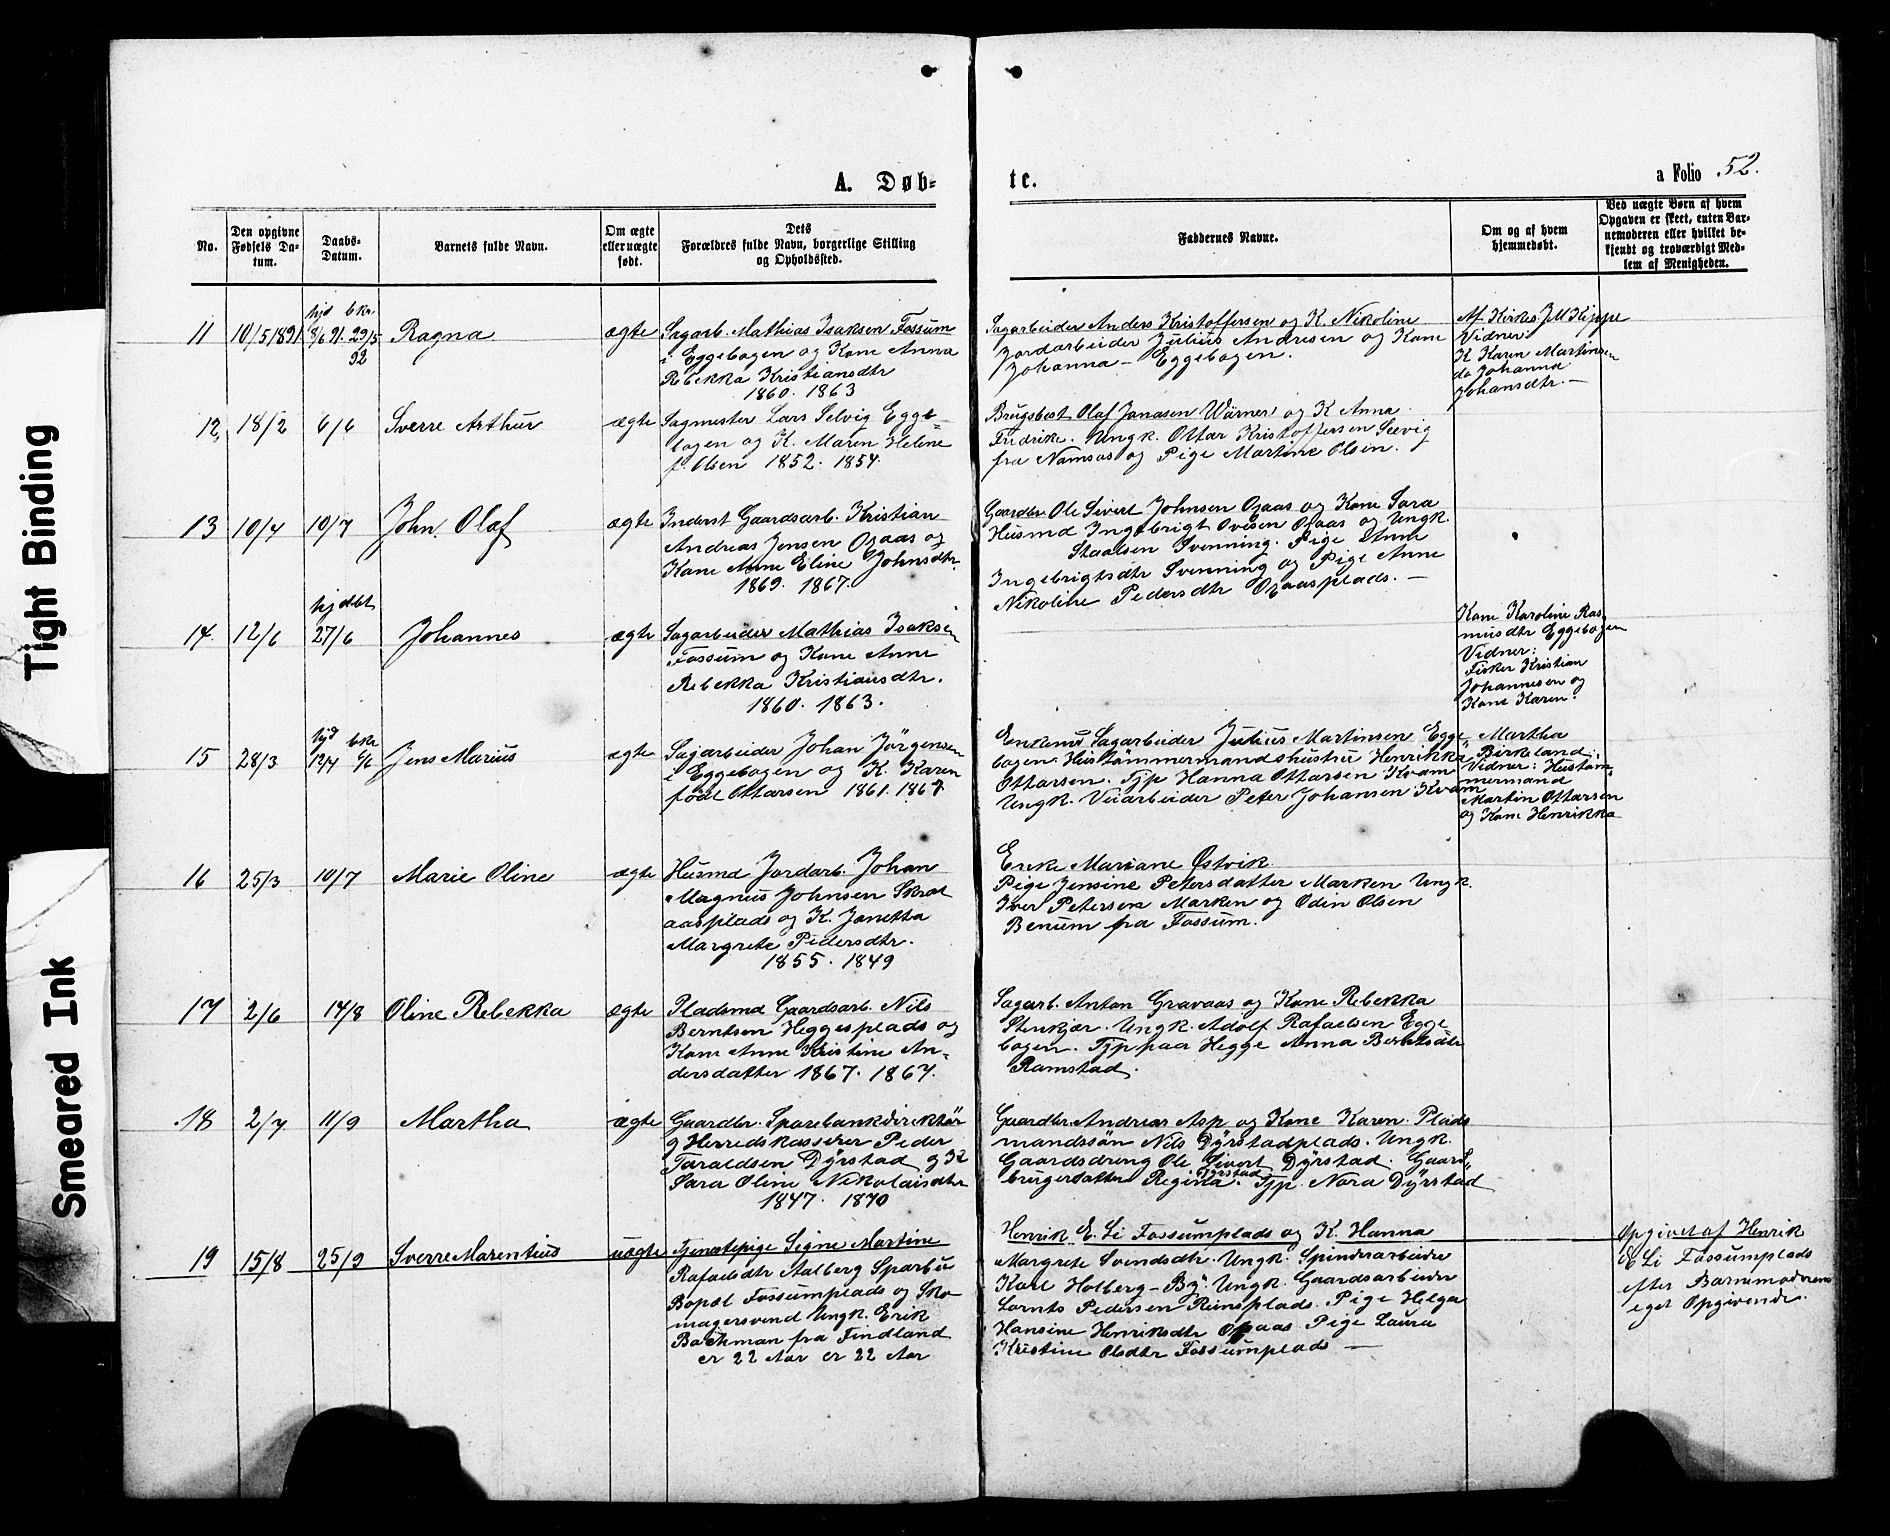 Tight Binding
Smeared Ink
A. Døb-
te.
a Folio 52.
No.
Den opgivne
Fødsels Da-
tum.
Daabs-
Datum.
Barnets fulde Navn.
Om ægte
eller uægte
født.
Dets
Forældres fulde Navn, borgerlige Stilling
og Opholdssted.
Faddernes Navne.
Om og af hvem
hjemmedøbt.
Ved uægte Børn af hvem
Opgaven er skeet, enten Bar-
nemoderen eller hvilket be-
kjendt og troværdigt Med-
lem af Menigheden.
11
10/5 1891
hjd bkr.
8/6 91. 29/5
92
Ragna
ægte
Sagarb. Mathias Isaksen Fossum
i Eggebogen og Kone Anna
Rebekka Kristiansdtr
1860. 1863
Sagarbeider Anders Kristoffersen og K. Nikoline
Jordarbeider Julius Andresen og Kone
Johanna - Eggebogen.
Af Kirkes J M Kippe
Vidner
K Karen Martinsen
do Johanna
Johansdtr. -
12,
18/2
6/6
Sverre Arthur
ægte
Sagmester Lars Selvig Egge=
bogen og K. Maren Helene
f. Olsen 1852. 1854.
Brugsbest Olaf Jonasen Wärner og K Anna
Fredrike. Ungk. Ottar Kristoffersen Seevig
fra Namsos og Pige Martine Olsen.
13
10/4
10/7
John. Olaf
ægte
Inderst Gaardsarb. Kristian
Andreas Jensen Ogaas og
Kone Anne Eline Johnsdtr.
1869. 1867.
Gaardbr. Ole Sivert Johnsen Ogaas og Kone Sara
Husmd Ingebrigt Ovesen Ogaas og Ungk.
Staalsen Svenning. Pige Anna
Ingebrigtsdtr Svenning og Pige Anne
Nikoline Pedersdtr Ogaasplads. -
14.
12/6
hjdbt
27/6
Johannes
ægte
Sagarbeider Mathias Isaksen
Fossum og Kone Anne
Rebekka Kristiansdtr.
1860. 1863.
Kone Karoline Ras
musdtr Eggebogen
Vidner:
Fisker Kristian
Johannesen og
Kone Karen.
15
28/3
hjd bkr
13/4 6/6
Jens Marius
ægte
Sagarbeider Johan Jørgensen
i Eggebogen og K. Karen
født Ottarsen 1861. 1867
Enkemd Sagarbeider Julius Martinsen Egge
bogen. Hustömmermandshustru Henrikka
Ottarsen. Tjp Hanna Ottarsen Kvam
Ungk. Veiarbeider Peter Johansen Kvam
Martha
Birkeland.
Vidner: Hustöm
mermand
Martin Ottarsen
og Kone Henrikka
16
25/3
10/7
Marie Oline
ægte
Husmd Jordarb. Johan
Magnus Johnsen Skrat
aasplads og K. Janetta
Margrete Pedersdtr.
1855. 1849
Enke Mariane Østvik
Pige Jensine Petersdatter Marken Ungk.
Iver Petersen Marken og Odin Olsen
Benum fra Fossum.
17
2/6
14/8
Oline Rebekka
ægte
Pladsmd Gaardsarb. Nils
Berntsen Heggesplads og
Kone Anne Kristine An-
dersdatter 1867. 1867.
Sagarb. Anton Gravaas og Kone Rebekka
Stenkjær. Ungk. Adolf Rafaelsen Egge
bogen. Tjp paa Hegge Anna Berntsdtr
Ramstad.
18
2/7
11/9
Martha
ægte
Gaardbr. Sparebankdirektör
og Herredskasserer Peder
Taraldsen Dÿrstad og K
Sara Oline Nikolaisdtr
1847. 1870
Gaardbr. Andreas Asp og Kone Karen. Plads
mandssön Nils Dÿrstadplads. Ungk.
Gaardsdreng Ole Sivert Dÿrstad. Gaard
brugerdatter Regina Dÿrstad. Tjp. Nora Dÿrstad
19
15/8
25/9
Sverre Marentius
uægte
Tjenestepige Signe Martine
Rafaelsdtr Aalberg Sparbu
Bopæl Fossumplads og Sko
magersvend Ungk. Erik
Backman fra Findland
er 22 Aar er 22 Aar
Henrik E. Li Fossumplads og K. Hanna
Margrete Svendsdtr. Ungk. Spinderarbeider
Karl Holberg - By. Ungk. Gaardsarbeider
Lornts Pedersen Reinsplads. Pige Helga
Hansine Henriksdtr Ogaas Pige Laura
Kristine Olsdtr Fossumplads -
Opgivet af Henrik
E Li Fossumplads
efter Barnemoderens
eget Opgivende.